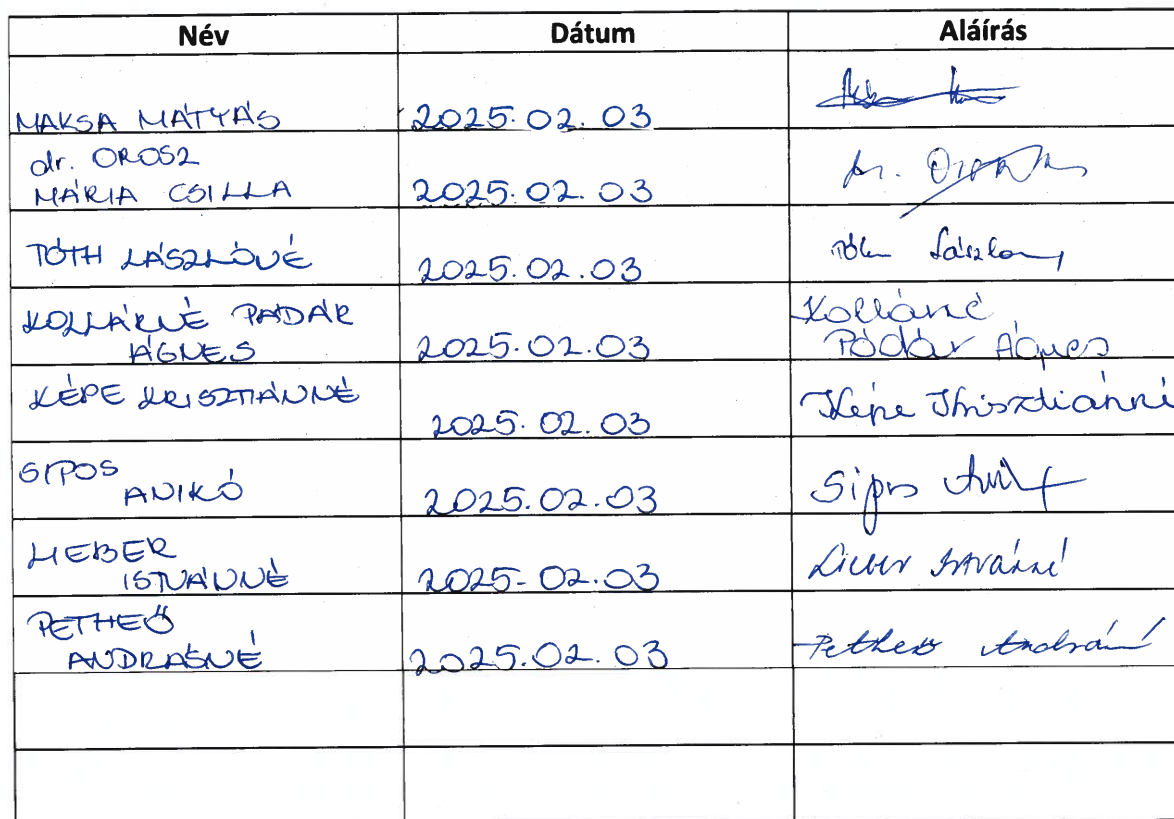 Név Dátum Aláírás
MAKSA MÁTYÁS 2025.02.03
dr. OROSZ
MÁRIA CSILLA 2025.02.03 dr.
TÓTH LÁSZLÓNÉ 2025.02.03 Tóth Lászlóné
KOLLÁRNÉ PADÁR Kollárné
ÁGNES 2025.02.03 Pádár Ágnes
KÉPE KRISZTIÁNNÉ 2025.02.03 Képe Krisztiánné
SIPOS
ANIKÓ 2025.02.03 Sipos Anikó
LIEBER
ISTVÁNNÉ 2025.02.03 Lieber Istvánné
PETHEŐ
ANDRÁSNÉ 2025.02.03 Petheő Andrásné